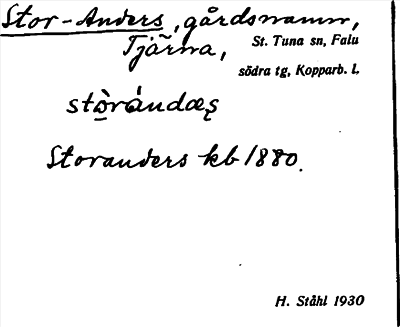 Stor-Anders, gårdsnamn,
Tjärna, St. Tuna sn, Falu
södra tg, Kopparb. l.
stòrándæs̨
Storanders kb 1880.
H. Ståhl 1930